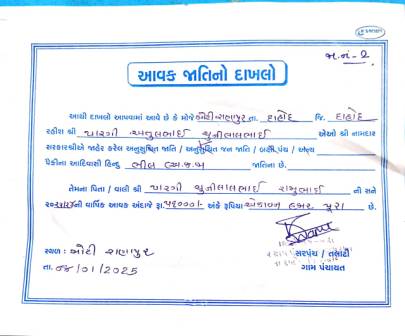 જા.નં - 2
આવક જાતિનો દાખલો
આથી દાખલો આપવામાં આવે છે કે મોજે મોટી રાણાપુર તા. દાહોદ જિ. દાહોદ
રહીશ શ્રી પારગી અતુલભાઈ ચુનીલાલભાઈ એઓ શ્રી નામદાર
સરકારશ્રીએ જાહેર કરેલ અનુસુચિત જાતિ / અનુસુચિત જન જાતિ / બક્ષી પંચ / અન્ય
પૈકીના આદિવાસી હિન્દુ ભીલ જાતિના છે.
તેમના પિતા / વાલી શ્રી પારગી ચુનીલાલભાઈ રામુભાઈ ની સને
ની વાર્ષિક આવક અંદાજે રૂા. અંકે રૂપિયા હજાર પૂરા છે.
સ્થળ : મોટી રાણાપુર સરપંચ / તલાટી
તા. 04/01/2025 ગ્રામ પંચાયત